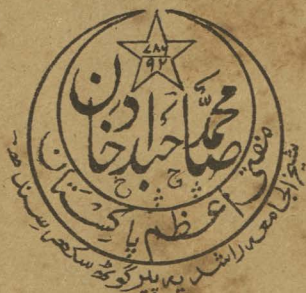 ۷۸۶
۹۲
محمد صاحبداد خان
مفتی اعظم پاکستان
شیخ الجامعہ راشدیہ پیرگوٹھ سکھر سندھ